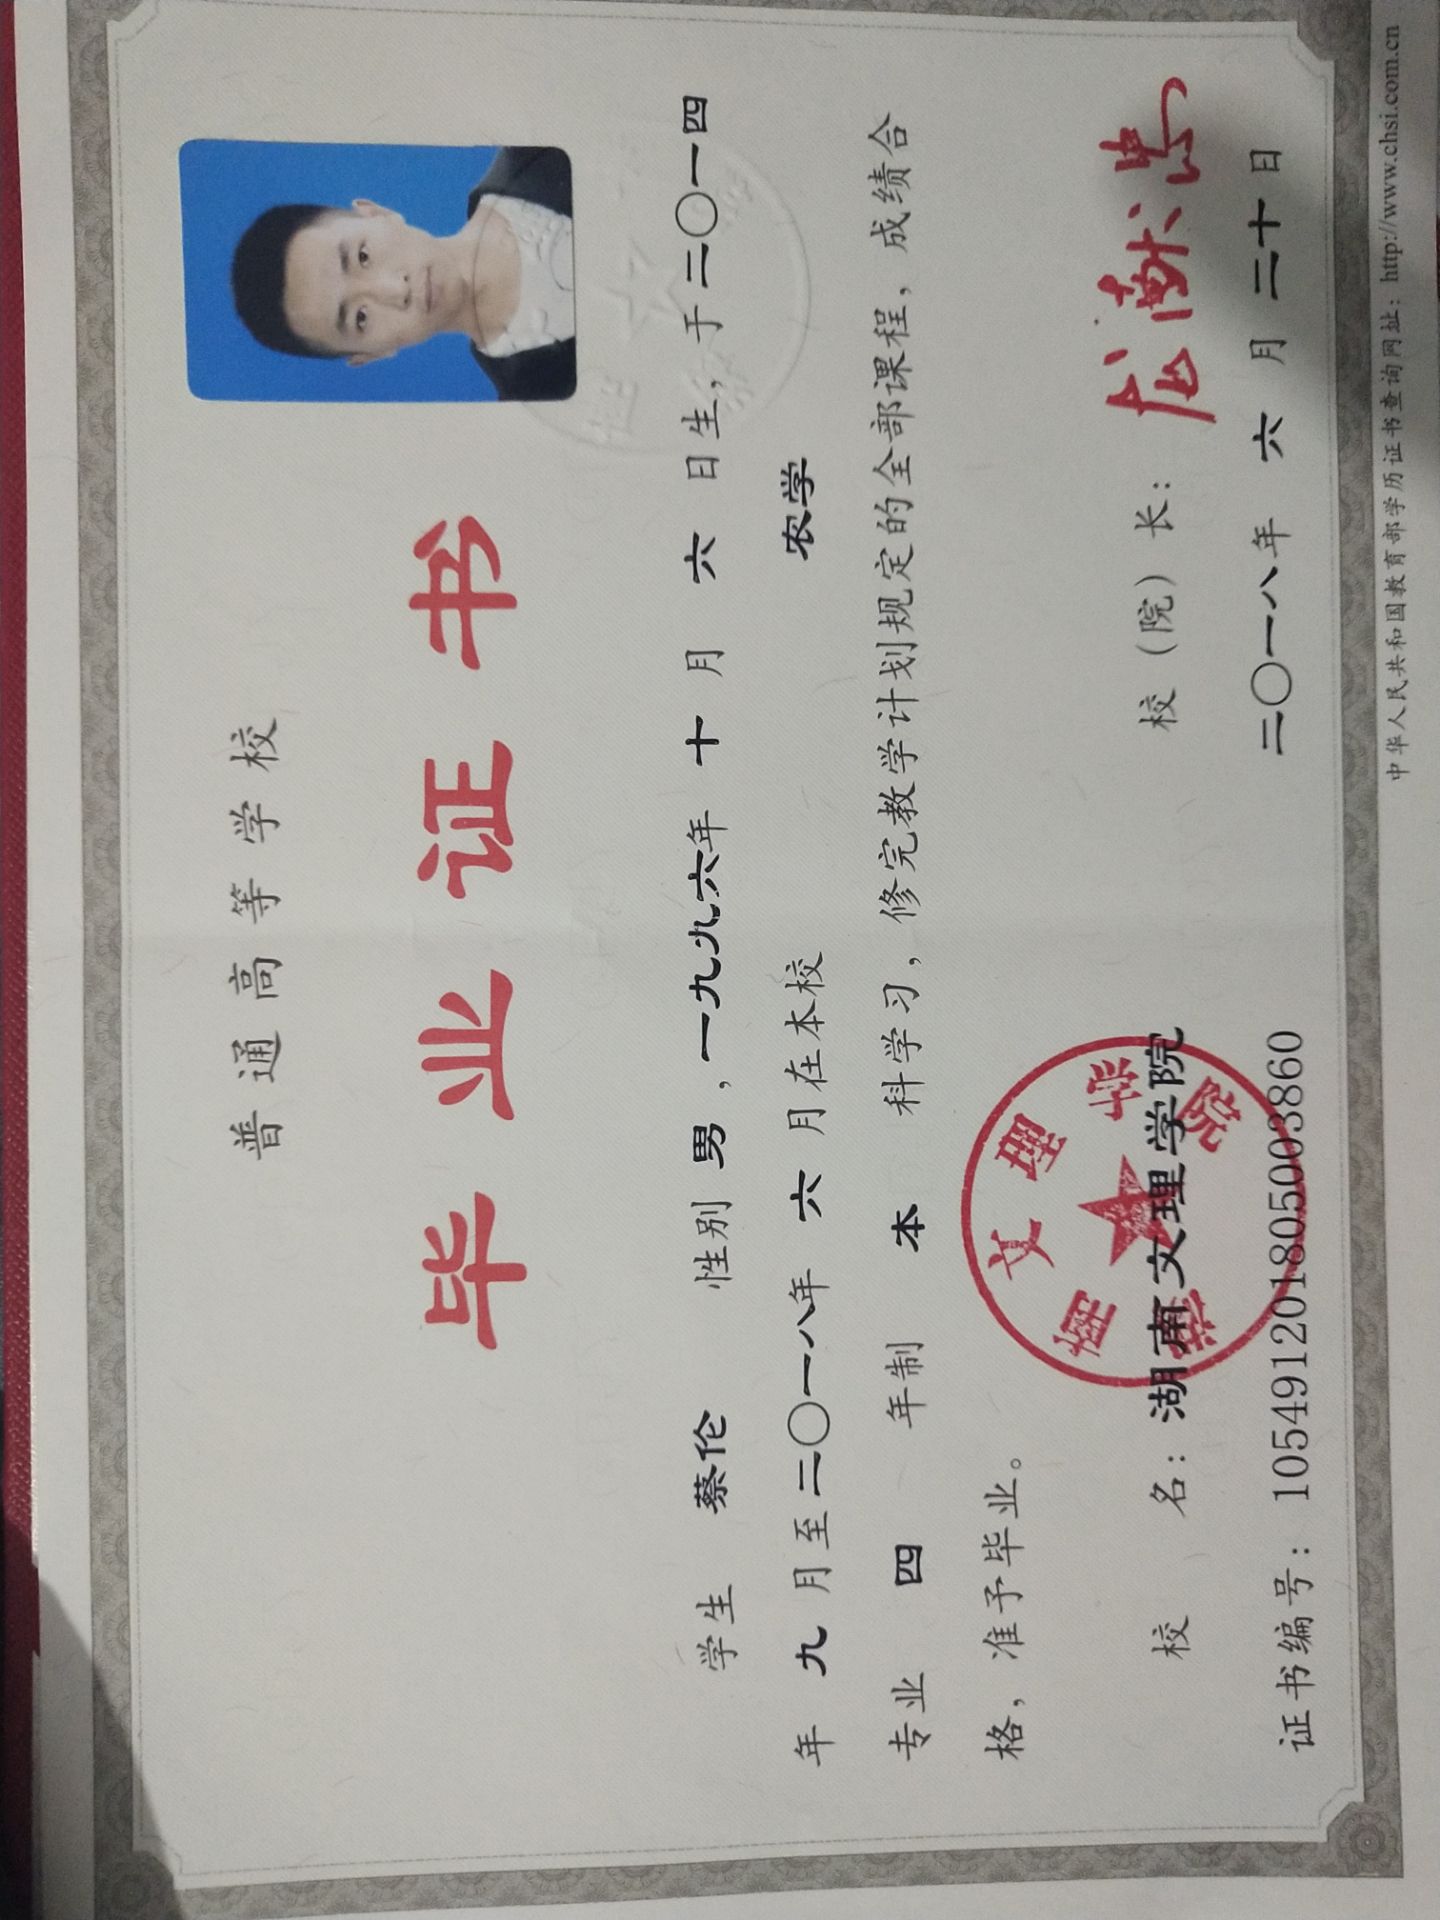 普通高等学校
毕业证书
学生 蔡伦 性别 男 ,一九九六年 十 月 六 日生,于二〇一四
年 九 月至二〇一八年 六 月在本校 农学
专业 四 年制 本 科学习，修完教学计划规定的全部课程，成绩合
格，准予毕业。
校 名：湖南文理学院 校（院）长：
证书编号：105491201805003860 二〇一八年 六 月二十日
中华人民共和国教育部学历证书查询网址：http://www.chsi.com.cn